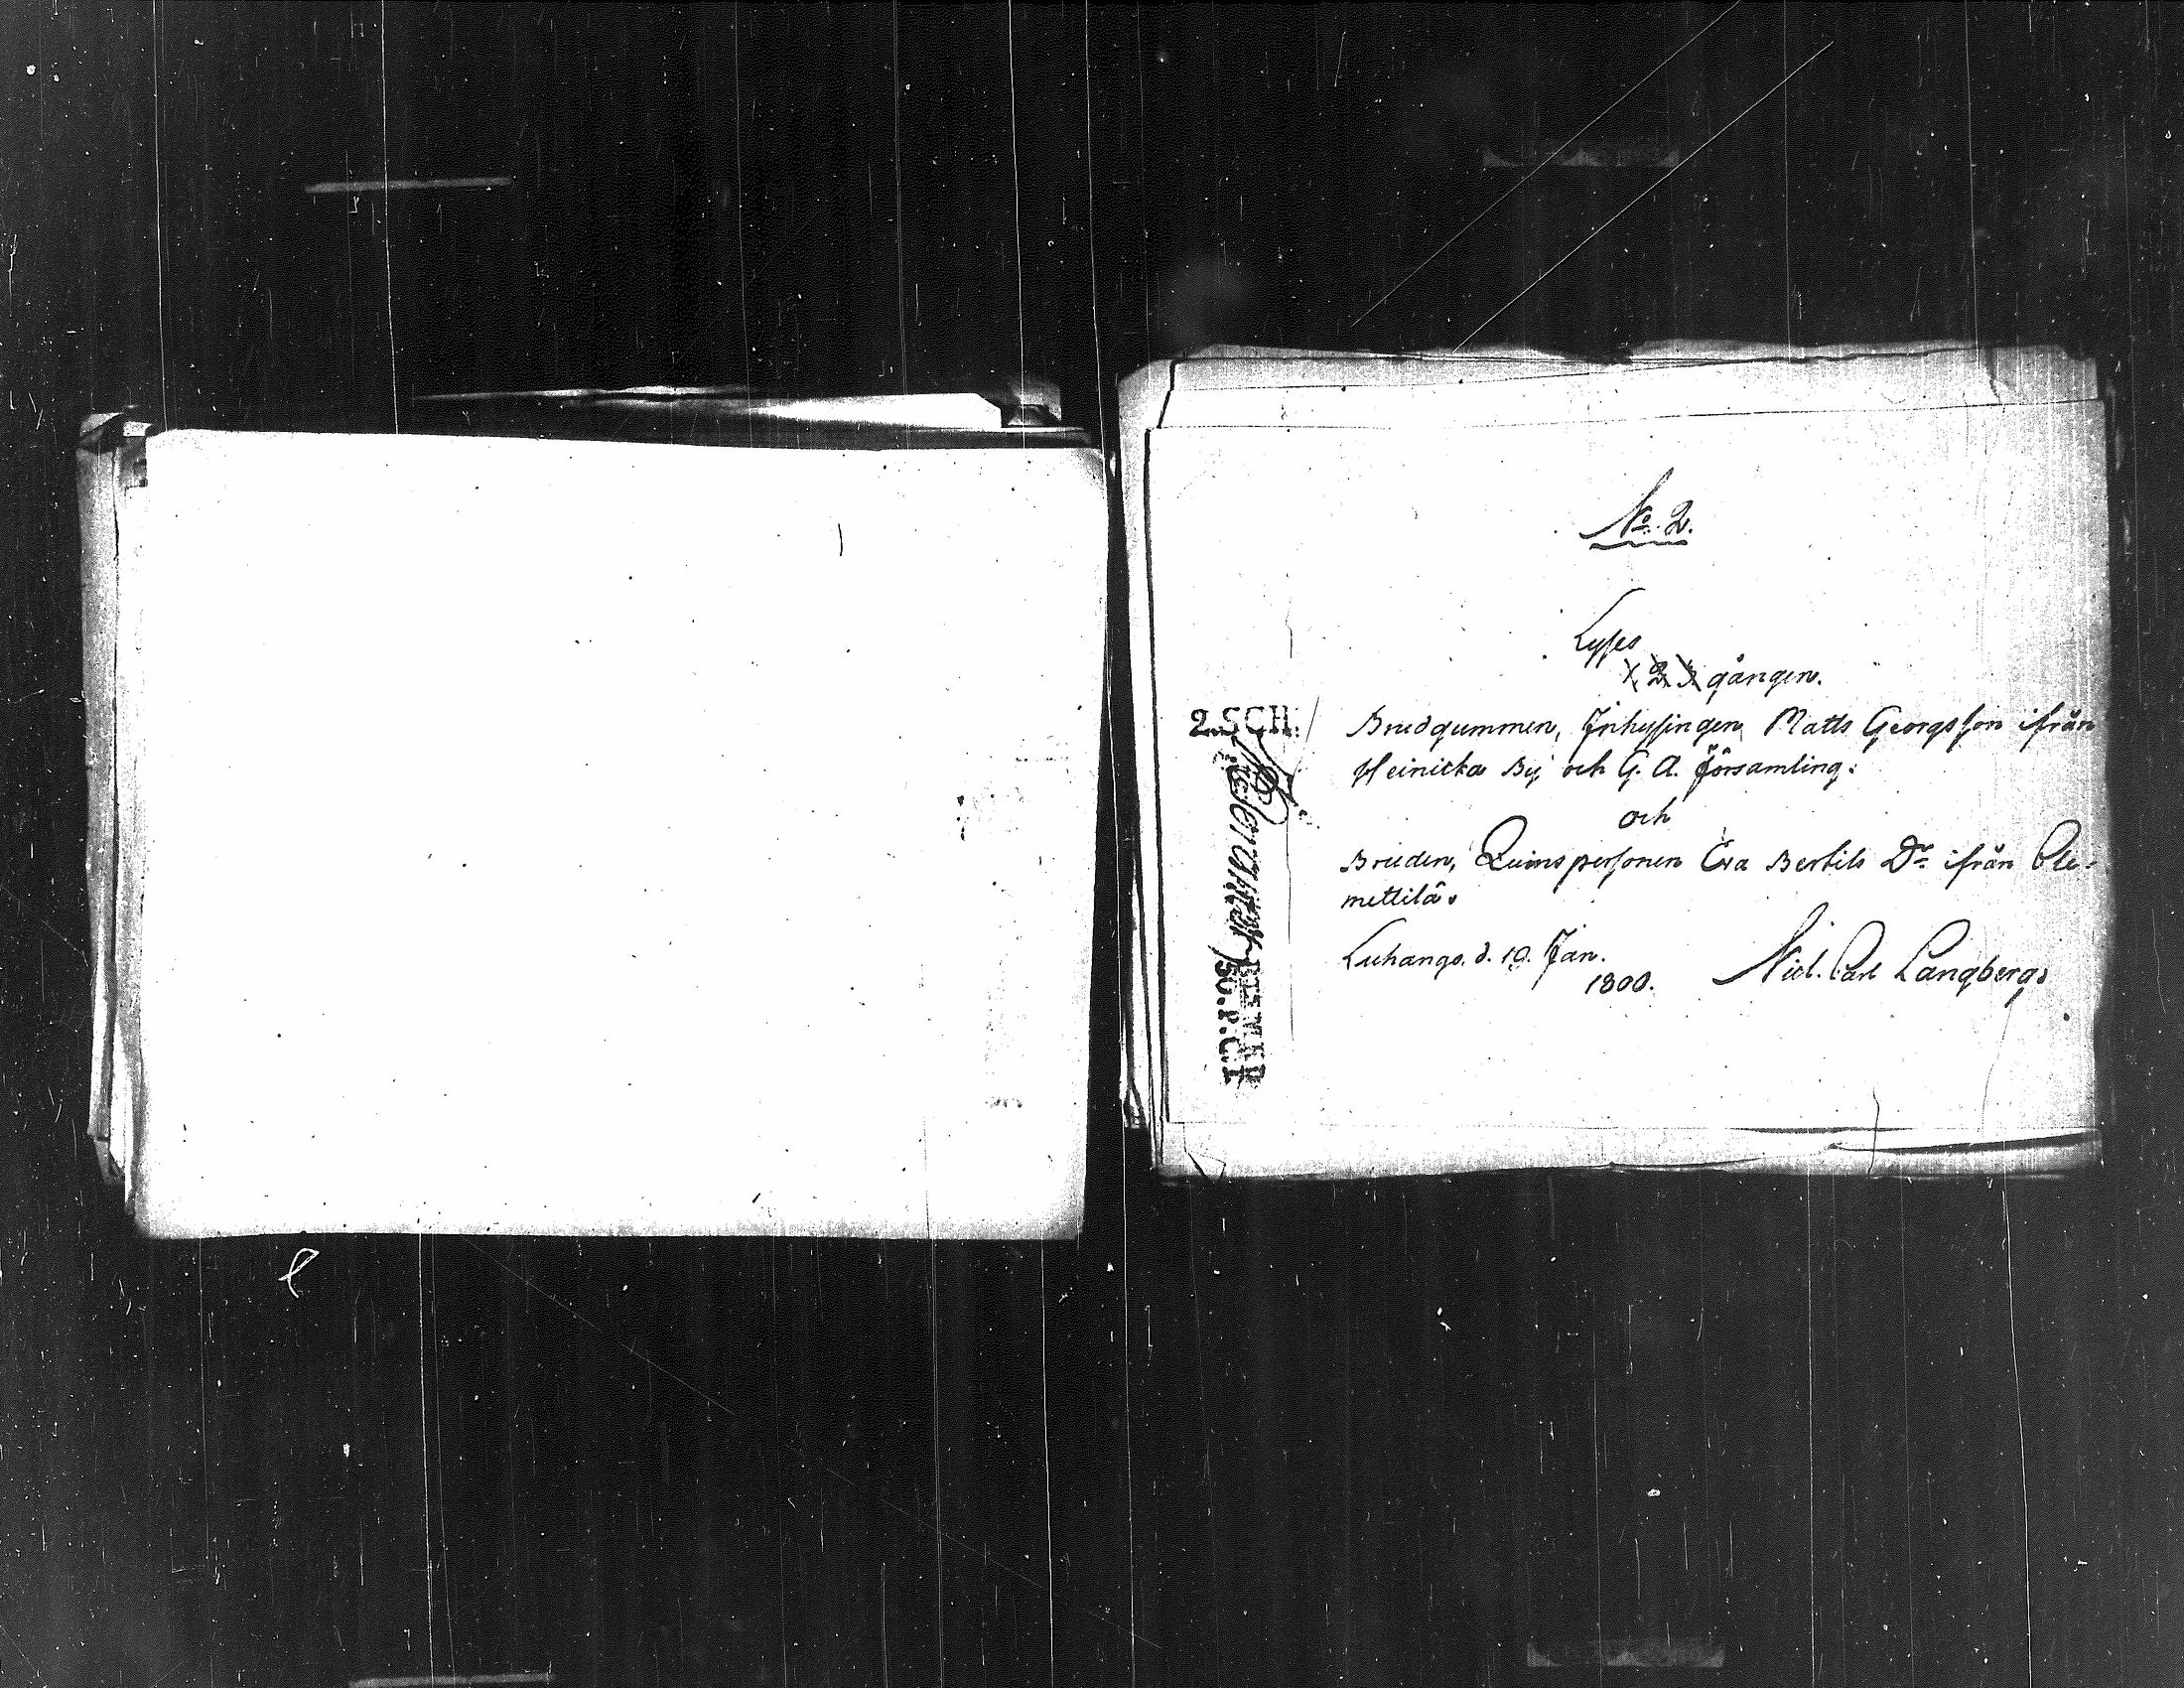 No. 2.
Lyses
1. 2. 3. gången.
2.SCH.
Brudgummen, Inhysingen Matts Georgsson ifrån
Heinicka By och G. A. Församling:
och
Bruden, Quinspersonen Eva Bertils Dr. ifrån Cle-
mettilä.
Luhango. d. 10. Jan.
1800.
Nicl. Carl Langberg